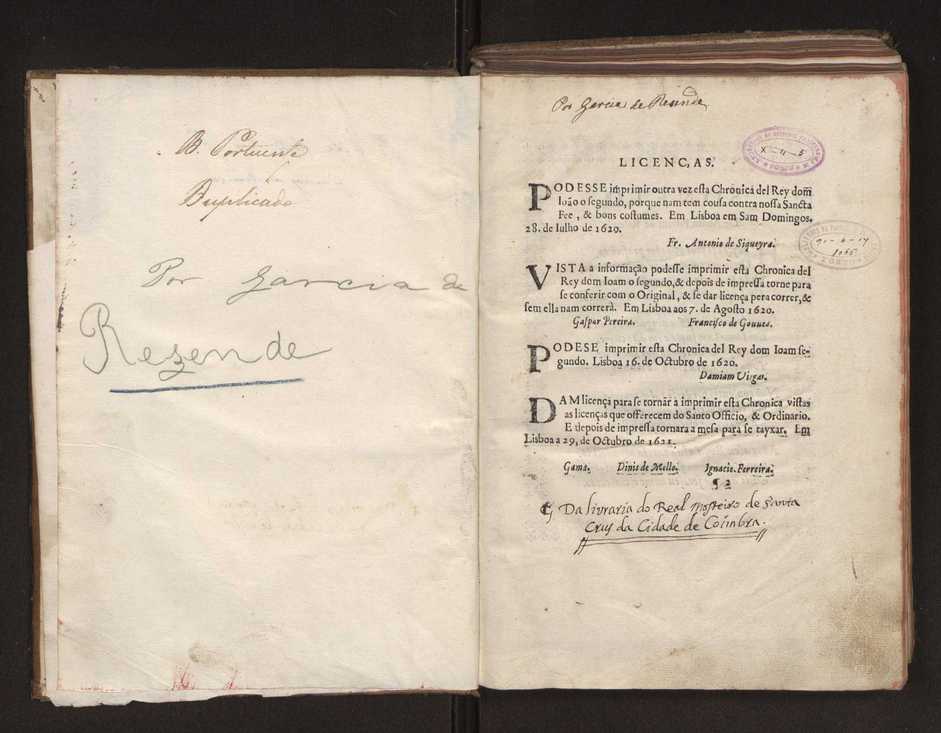 B. Portuense
Duplicado
Por Garcia de
Rezende
Por Garcia de Resende
LICENÇAS.
PODESSE imprimir outra vez esta Chronica del Rey dom
Ioão o segundo, porque nam tem cousa contra nossa Sancta
Fee, & bons costumes. Em Lisboa em Sam Domingos.
28. de Iulho de 1620.
Fr. Antonio de Siqueyra.
VISTA a informação podesse imprimir esta Chronica del
Rey dom Ioam o segundo, & depois de impressa torne para
se conferir com o Original, & se dar licença pera correr, &
sem ella nam correrà. Em Lisboa aos 7. de Agosto 1620.
Gaspar Pereira. Francisco de Gouuea.
PODESE imprimir esta Chronica del Rey dom Ioam se-
gundo. Lisboa 16. de Octubro de 1620.
Damiam Viegas.
DAM licença para se tornar a imprimir esta Chronica vistas
as licenças que offerecem do Santo Officio, & Ordinario.
E depois de impressa tornara a mesa para se tayxar. Em
Lisboa a 29, de Octubro de 1621.
Gama. Dinis de Mello. Ignacio Ferreira.
¶ 2
Da livraria do Real Mosteiro de Santa
Cruz da Cidade de Coimbra.